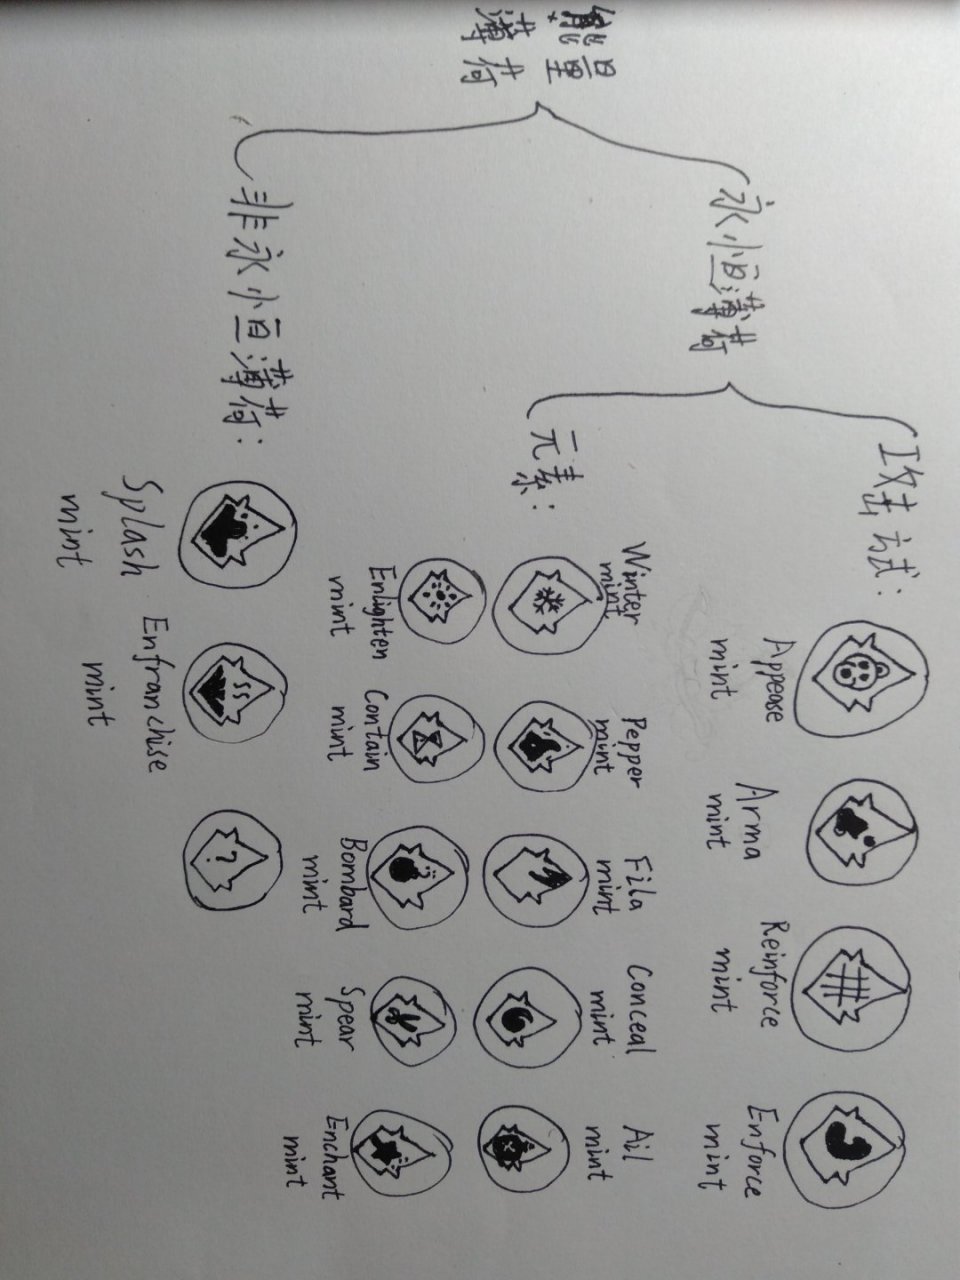 能量
薄荷
永恒薄荷
攻击方式：
Appease
mint
Arma
mint
Reinforce
mint
Enforce
mint
元素：
Winter
mint
Pepper
mint
Fila
mint
Conceal
mint
Ail
mint
Enlighten
mint
Contain
mint
Bombard
mint
Spear
mint
Enchant
mint
非永恒薄荷：
Splash
mint
Enfranchise
mint
?